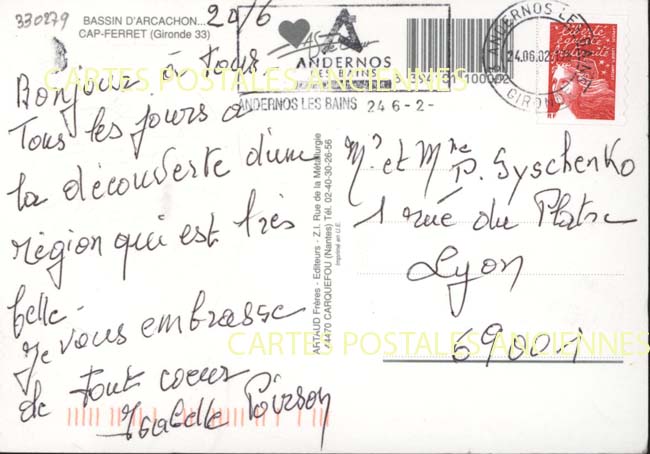 330279
BASSIN D'ARCACHON...
CAP-FERRET (Gironde 33)
20/6
Bonjour à tous
Tous les jours à
la découverte d'une
région qui est très
belle.
Je vous embrasse
de tout coeur
Isabelle Poirson
ANDERNOS
LES BAINS
ANDERNOS LES BAINS 24 6 - 2 -
24.06.02
GIRONDE
liberté
égalité
ARTAUD Frères - Editeurs - Z.I. Rue de la Métallurgie
44470 CARQUEFOU (Nantes) Tél. 02-40-30-26-56
Imprimé en U.E.
Mr et Mme P. Syschenko
1 rue du Platre
Lyon
69001
CARTES POSTALES ANCIENNES
CARTES POSTALES ANCIENNES